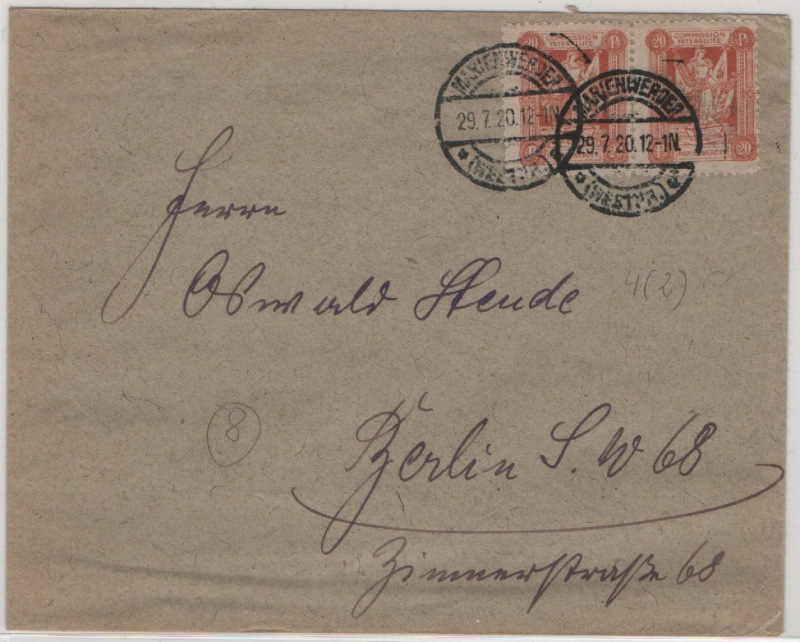 20 Pf
COMMISSION
INTERALLIÉE
20
COMMISSION
INTERALLIÉE
20 Pf
20
MARIENWERDER
29.7.20.12-1N.
* (WESTPR.) *
MARIENWERDER
29.7.20.12-1N.
* (WESTPR.) *
Herrn
Oswald Stende
4(2)
8
Berlin S.W 68
Zimmerstraße 68